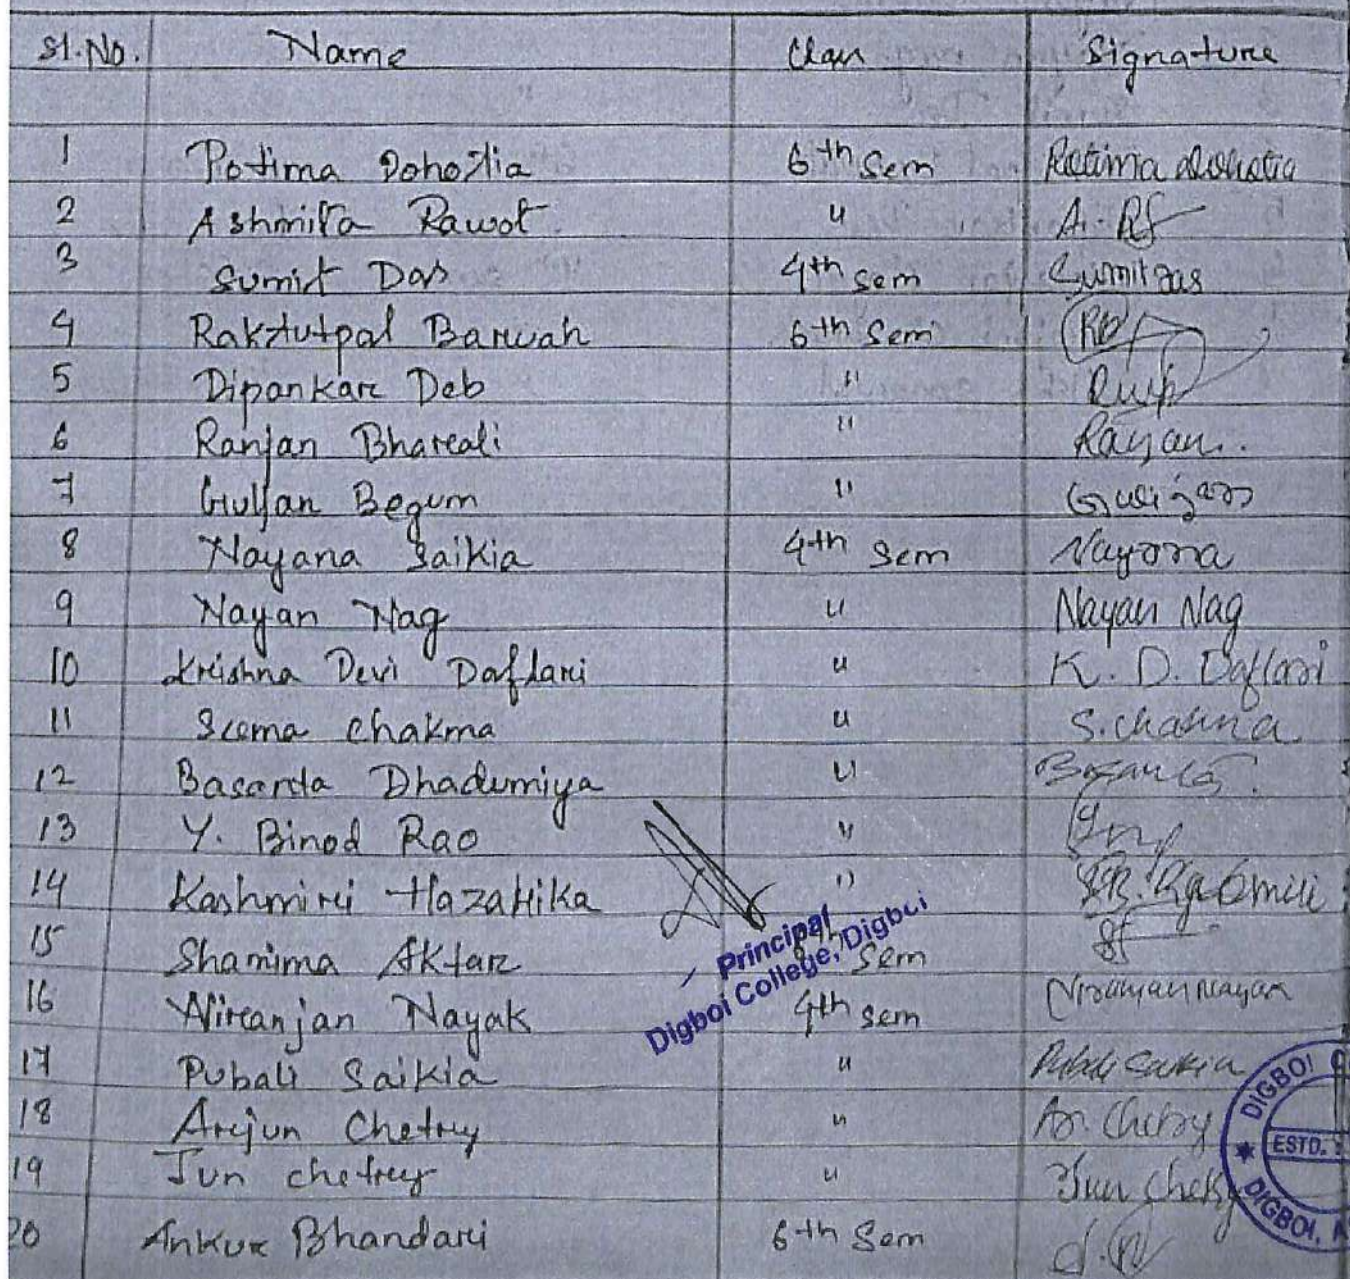 Sl.No. Name Class Signature
1 Potima Dohotia 6th Sem Potima dohotia
2 Ashmita Rawot " A. R
3 Sumit Das 4th sem Sumit Das
4 Raktutpal Baruah 6th Sem RB
5 Dipankar Deb "
6 Ranjan Bharali " Ranjan.
7 Guljan Begum " Guljan
8 Nayana Saikia 4th Sem Nayana
9 Nayan Nag " Nayan Nag
10 Krishna Devi Daflari " K. D. Daflari
11 Seema Chakma " S. chakma
12 Basanta Dhadumiya " Basanta
13 Y. Binod Rao "
14 Kashmiri Hazarika "
15 Shamima Aktar Sem
16 Niranjan Nayak 4th sem Niranjan Nayak
17 Pubali Saikia " Pubali Saikia
18 Arjun Chetry " Ar. Chetry
19 Jun chetry " Jun Chetry
20 Ankur Bhandari 6th Sem
Principal
Digboi College, Digboi
DIGBOI C
ESTD.
DIGBOI, A